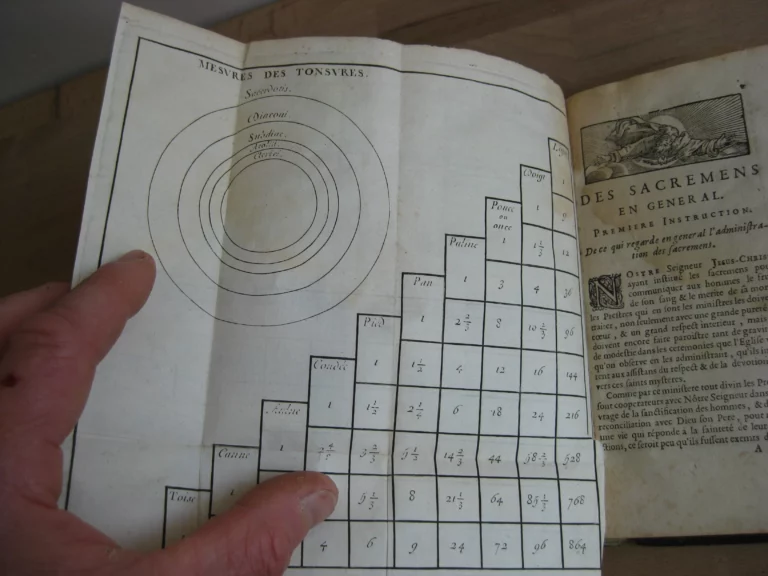 MESVRES DES TONSVRES.
Sacerdotis.
Diaconi.
Subdiac.
Acol.
Cleric.
Doigt
1
1
9
Pouce
ou
once
1
1 1/3
12
Palme
1
3
4
36
Pan
1
2 2/3
8
10 2/3
96
Pied
1
1 1/2
4
12
16
144
Coudée
1
1 1/2
2 1/4
6
18
24
216
Aulne
1
3 2/3
5 1/2
14 2/3
44
58 2/3
528
Canne
5 1/3
8
21 1/3
64
85 1/3
768
Toise
4
6
9
24
72
96
864
DES SACREMENS
EN GENERAL.
PREMIERE INSTRUCTION.
De ce qui regarde en general l'administra-
tion des sacremens.
NOSTRE Seigneur JESUS-CHRIS
ayant institué les sacremens pou
communiquer aux hommes le fru
de son sang & le merite de sa mo
les Prestres qui en sont les ministres les doive
traiter, non seulement avec une grande pureté
cœur, & un grand respect interieur, mais
doivent encore faire paroître tant de gravit
de modestie dans les ceremonies que l'Eglise v
qu'on observe en les administrant, qu'ils in
rent aux assistans du respect & de la devotion
vers ces saints mysteres.
Comme par ce ministere tout divin les Pre
sont cooperateurs avec Nôtre Seigneur dans
vrage de la sanctification des hommes, & d
reconciliation avec Dieu son Pere, pour
une vie qui réponde à la sainteté de leur
ctions, ce seroit peu qu'ils fussent exemts d
A